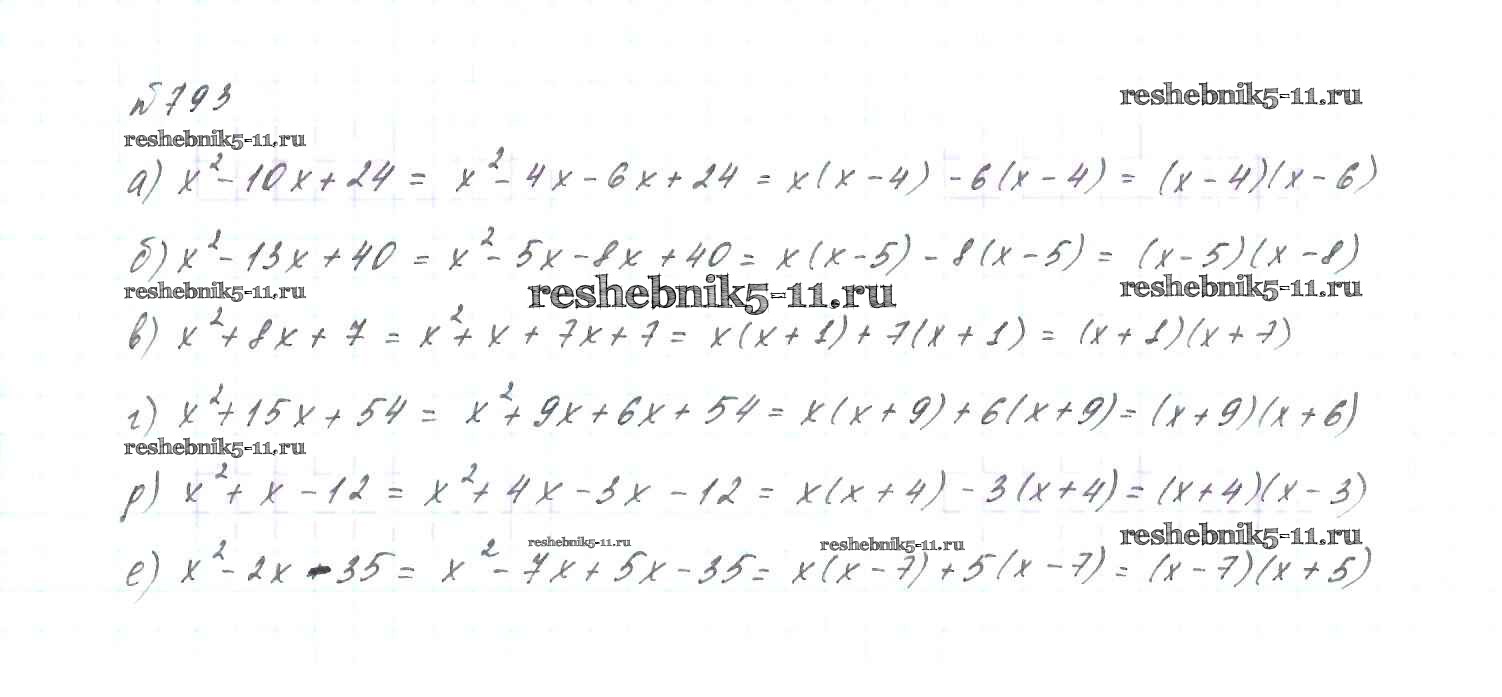 №793
reshebnik5-11.ru
reshebnik5-11.ru
а) x² - 10x + 24 = x² - 4x - 6x + 24 = x(x - 4) - 6(x - 4) = (x - 4)(x - 6)
б) x² - 13x + 40 = x² - 5x - 8x + 40 = x(x - 5) - 8(x - 5) = (x - 5)(x - 8)
reshebnik5-11.ru
reshebnik5-11.ru
reshebnik5-11.ru
в) x² + 8x + 7 = x² + x + 7x + 7 = x(x + 1) + 7(x + 1) = (x + 1)(x + 7)
г) x² + 15x + 54 = x² + 9x + 6x + 54 = x(x + 9) + 6(x + 9) = (x + 9)(x + 6)
reshebnik5-11.ru
д) x² + x - 12 = x² + 4x - 3x - 12 = x(x + 4) - 3(x + 4) = (x + 4)(x - 3)
reshebnik5-11.ru
reshebnik5-11.ru
reshebnik5-11.ru
е) x² - 2x - 35 = x² - 7x + 5x - 35 = x(x - 7) + 5(x - 7) = (x - 7)(x + 5)